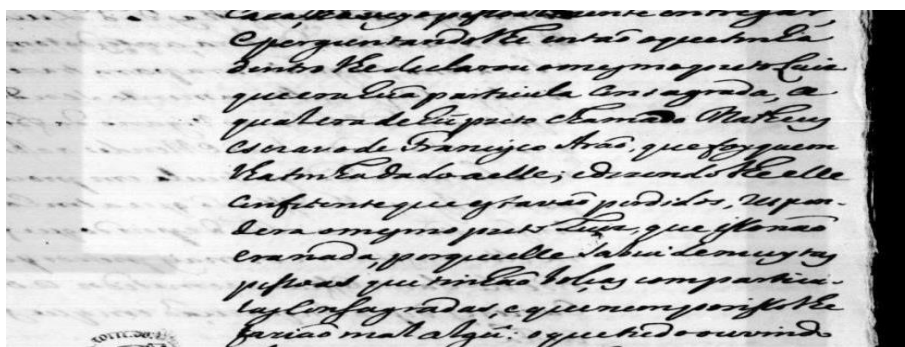 e perguntandolhe entaõ o que tinha
dentro lhe declarou o mesmo preto Luis
que era huã particula consagrada, a
qual era de hũ preto chamado Matheus
escravo de Francisco Araõ, que foy quem
lha tinha dado a elle; e dizendo lhe elle
confitente que estavaõ perdidos, respon-
dera o mesmo preto Luis, que isto naõ
era nada, porque elle sabia de muytas
pessoas que tinhaõ bolças com particu-
las consagradas, e que nem por isso lhe
faziaõ mal algũ: o que tudo ouvindo